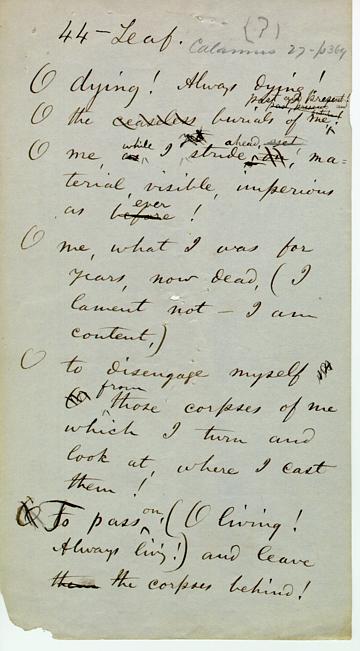 44-Leaf. (?)
Calamus 27-p364
O dying! Always dying!
past and present!
O the ceaseless burials of me!
while ahead,
O me, as I stride on! ma=
terial, visible, imperious
ever
as before!
O me, what I was for
years, now dead, (I
lament not — I am
content,)
O to disengage myself
from
those corpses of me
which I turn and
look at, where I cast
them!
on,
To pass (O living!
Always livi!) and leave
them the corpses behind!